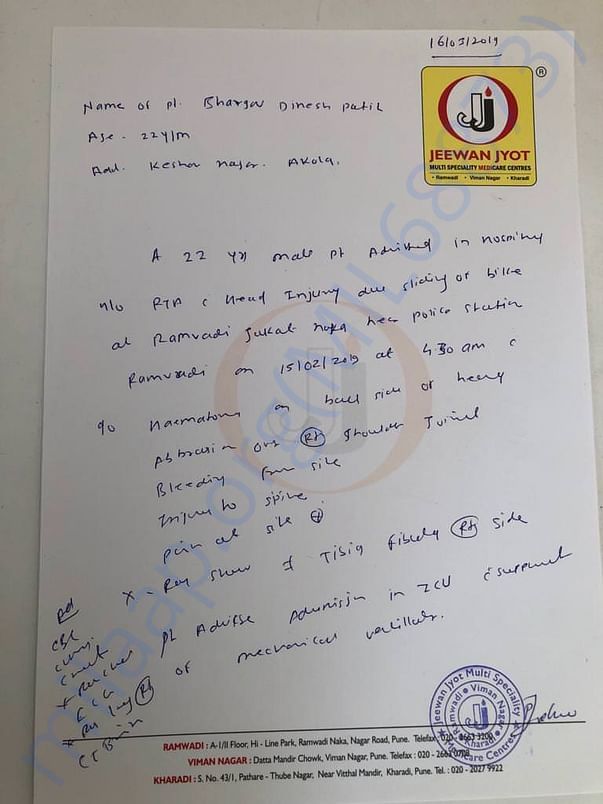 16/03/2019
®
JEEWAN JYOT
MULTI SPECIALITY MEDICARE CENTRES
• Ramwadi • Viman Nagar • Kharadi
Name of pt. Bhargav Dinesh Patil
Age - 22y/m
Add. Keshav nagar. Akola.
A 22 yr male pt Admitted in
h/o RTA c Head Injury due sliding of bike
at Ramvadi Jakat naka near police station
Ramvadi on 15/02/2019 at 4:30 am c
c/o Haematoma on back side of
Abrasion over Rt shoulder Joint
Bleeding from site
Injury to spine
pain at site +
X-Ray show # Tibia fibula Rt side
pt Advise Admission in ICU c support
of mechanical ventillator.
Adv
CBC
ECG
X Ray leg Rt
CT Brain
Jeewan Jyot Multi Speciality
Medicare Centres
Ramwadi • Viman Nagar
Kharadi
RAMWADI : A-1/II Floor, Hi - Line Park, Ramwadi Naka, Nagar Road, Pune. Telefax : 020 - 6663 3200
VIMAN NAGAR : Datta Mandir Chowk, Viman Nagar, Pune. Telefax : 020 - 2663 0708
KHARADI : S. No. 43/1, Pathare - Thube Nagar, Near Vitthal Mandir, Kharadi, Pune. Tel. : 020 - 2027 9922